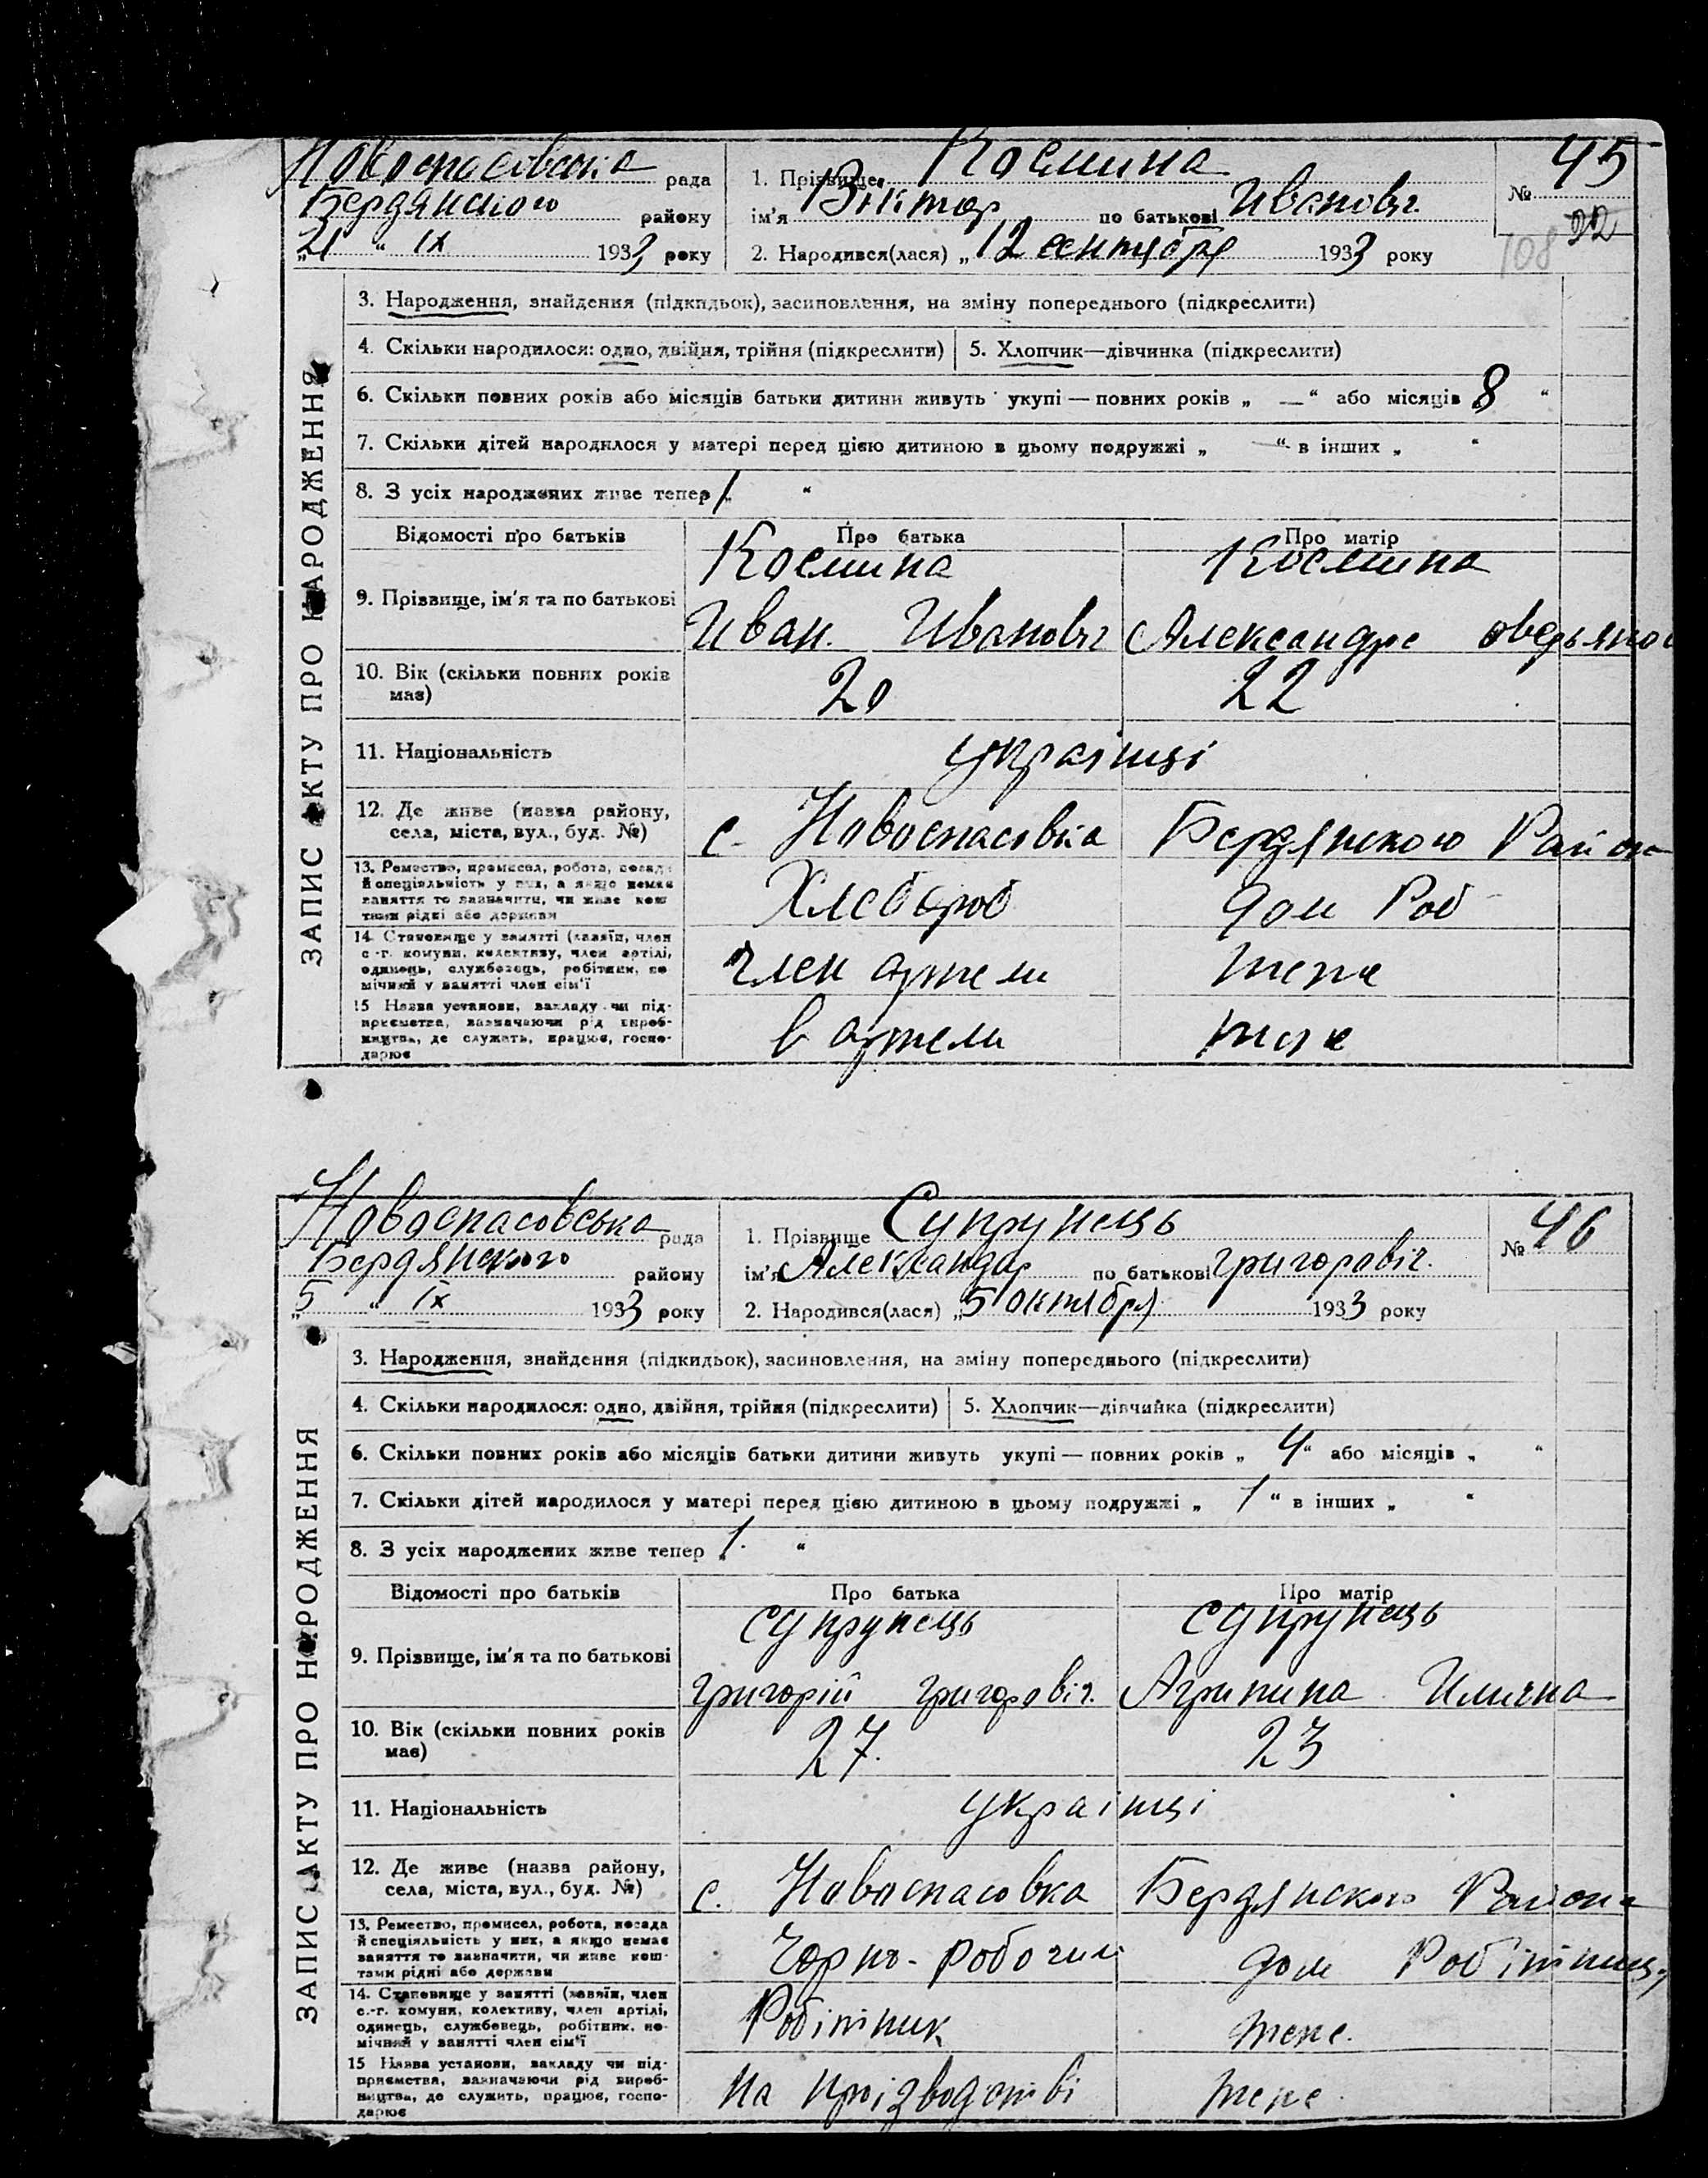 Новоспасовська рада
Бердянского району
„21“ ІХ 1933 року
1. Прізвище Космина
ім'я Віктор по батькові Иванович
2. Народився(лася) „12 сентября 1933 року
№ 45
22
108
ЗАПИС АКТУ ПРО НАРОДЖЕННЯ
3. Народження, знайдення (підкидьок), засиновлення, на зміну попереднього (підкреслити)
4. Скільки народилося: одно, двійня, трійня (підкреслити) 5. Хлопчик—дівчинка (підкреслити)
6. Скільки повних років або місяців батьки дитини живуть укупі — повних років „ —“ або місяців „8“
7. Скільки дітей народилося у матері перед цією дитиною в цьому подружжі „ —“ в інших „ “
8. З усіх народжених живе тепер „1“
Відомості про батьків Про батька Про матір
Космина Космина
9. Прізвище, ім'я та по батькові
Иван. Иванович Александра
10. Вік (скільки повних років має) 20 22
11. Національність українці
12. Де живе (назва району, села, міста, вул., буд. №) с. Новоспасовка Бердянского Район
13. Ремество, промисел, робота, посада й спеціяльність у них, а якщо немає заняття то зазначити, чи живе коштами рідні або держави Хлебороб дом Роб
14. Становище у занятті (хазяїн, член с.-г. комуни, колективу, член артілі, одинець, службовець, робітник, помічний у занятті член сім'ї член артели тоже
15 Назва установи, закладу чи підприємства, зазначаючи рід виробництва, де служить, працює, господарює в артели тоже
Новоспасовська рада
Бердянского району
„5“ ІХ 1933 року
1. Прізвище Супрунець
ім'я Александар по батькові григоровіч.
2. Народився(лася) „5 октября 1933 року
№ 46
ЗАПИС АКТУ ПРО НАРОДЖЕННЯ
3. Народження, знайдення (підкидьок), засиновлення, на зміну попереднього (підкреслити)
4. Скільки народилося: одно, двійня, трійня (підкреслити) 5. Хлопчик—дівчинка (підкреслити)
6. Скільки повних років або місяців батьки дитини живуть укупі — повних років „ 4“ або місяців „ “
7. Скільки дітей народилося у матері перед цією дитиною в цьому подружжі „ 1 “ в інших „ “
8. З усіх народжених живе тепер „1“
Відомості про батьків Про батька Про матір
Супрунець Супрунець
9. Прізвище, ім'я та по батькові
григорій григоровіч. Агрипина Илична
10. Вік (скільки повних років має) 27. 23
11. Національність українці
12. Де живе (назва району, села, міста, вул., буд. №) с. Новоспасовка Бердянского Района
13. Ремество, промисел, робота, посада й спеціяльність у них, а якщо немає заняття то зазначити, чи живе коштами рідні або держави Чорно-робочий дом Робітниця
14. Становище у занятті (хазяїн, член с.-г. комуни, колективу, член артілі, одинець, службовець, робітник, помічний у занятті член сім'ї Робітник тоже.
15 Назва установи, закладу чи підприємства, зазначаючи рід виробництва, де служить, працює, господарює на проізводстві тоже